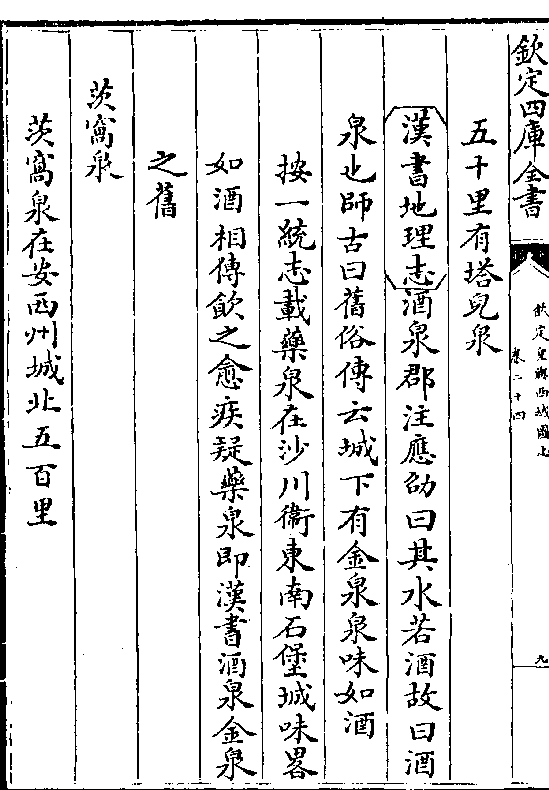 欽定四庫全書
欽定皇輿西域圖志
卷二十四
九
五十里有塔兒泉
漢書地理志酒泉郡注應劭曰其水若酒故曰酒
泉也師古曰舊俗傳云城下有金泉泉味如酒
按一統志載藥泉在沙川衞東南石堡城味畧
如酒相傳飲之愈疾疑藥泉即漢書酒泉金泉
之舊
茨窩泉
茨窩泉在安西州城北五百里